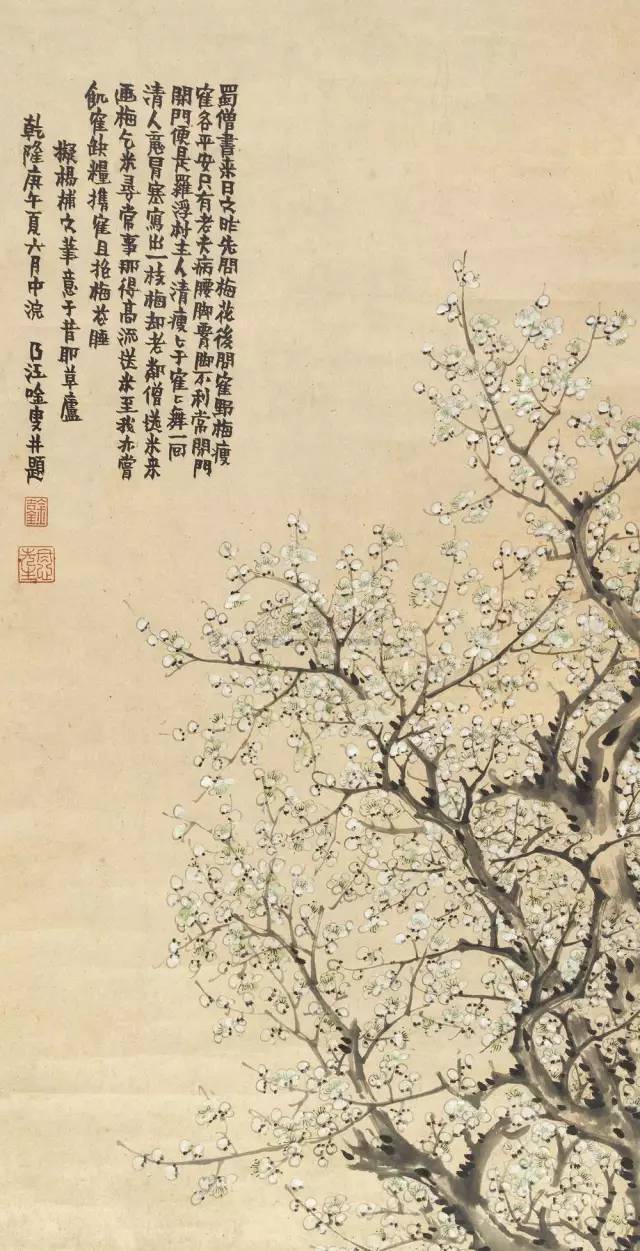 蜀僧書來日之昨先問梅花後問寉野梅瘦
寉各平安只有老夫病腰脚腰脚不利常閉門
閉門便是羅浮村主人清瘦〻于寉〻舞一回
清人意冒寒寫出一枝梅却老鄰僧送米來
画梅乞米尋常事那得高流送米至我亦嘗
飢寉缺糧携寉且抱梅花睡
擬楊補之筆意于昔耶草廬
乾隆庚午夏六月中浣 江唫叟并題